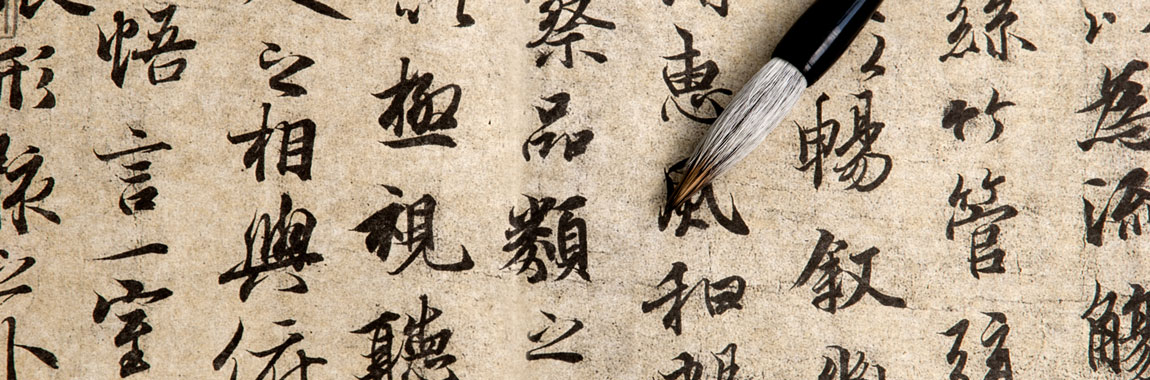 以為流觴
絲竹管弦
暢叙幽
惠風和暢
察品類之
以極視聽
之相與俯
悟言一室
形骸之外